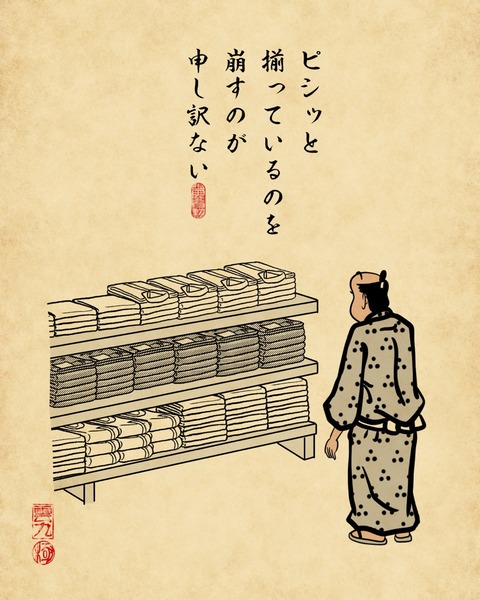 ピシッと
揃っているのを
崩すのが
申し訳ない